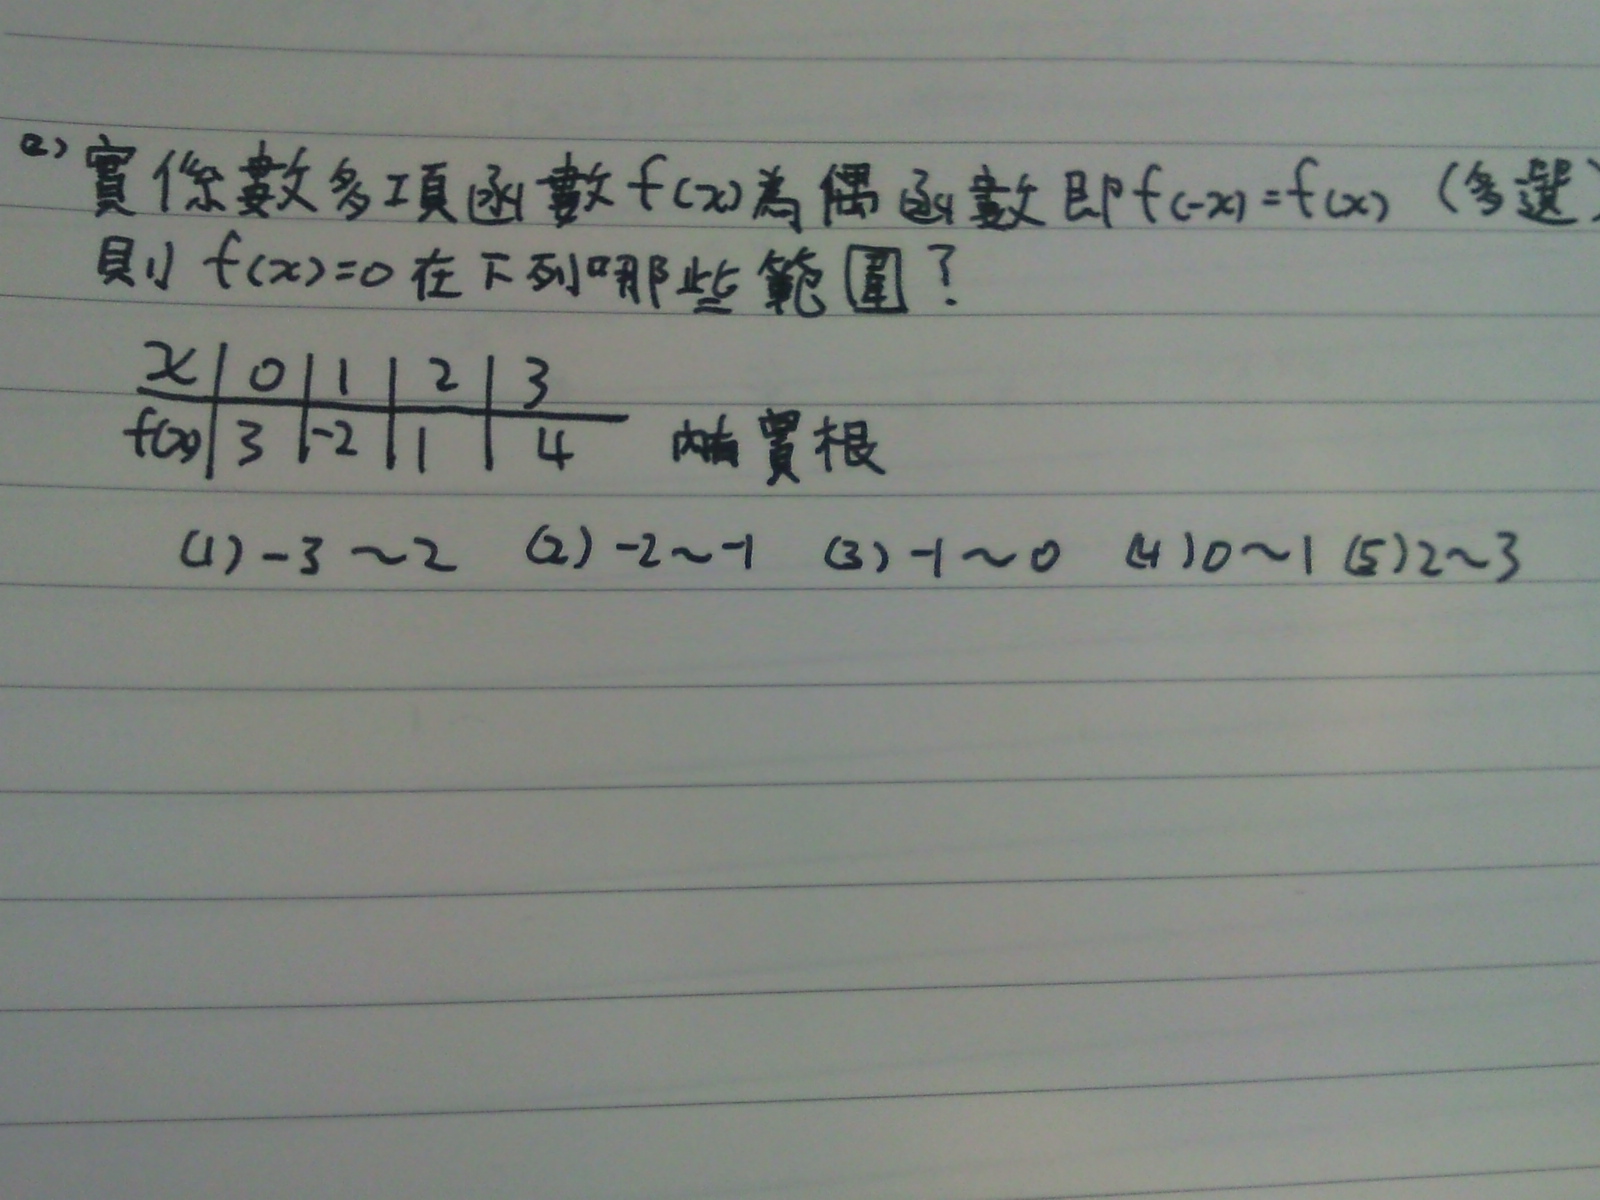 (2) 實係數多項函數f(x)為偶函數即f(-x)=f(x) (多選)
則 f(x)=0在下列哪些範圍?
x | 0 | 1 | 2 | 3
f(x) | 3 | -2 | 1 | 4 內有實根
(1) -3~2 (2) -2~-1 (3) -1~0 (4) 0~1 (5) 2~3